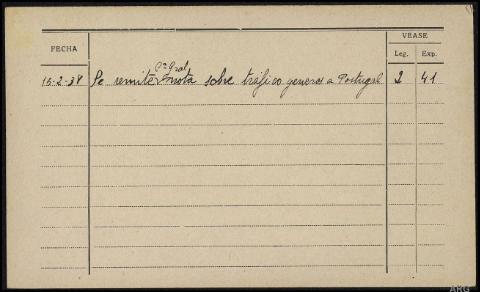 VEASE
FECHA
Leg. Exp.
Cª Gral
15-2-38 Se remite nota sobre tráfico generos a Portugal 2 41
ARG